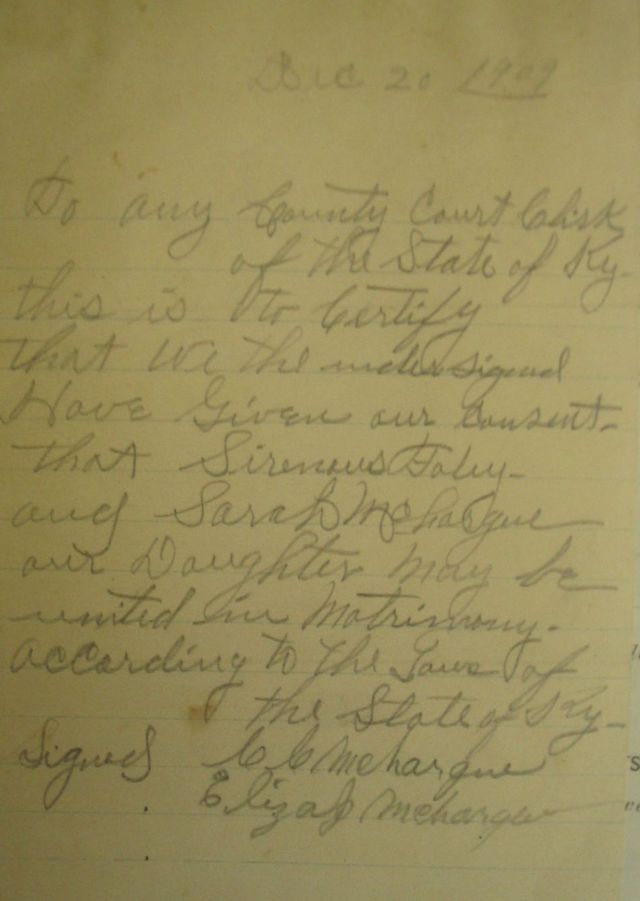 Dec 20 1909
To any County Court Clerk
of the State of Ky.
this is to Certify
that we the undersigned
Have Given our Consent-
that Sirenous Foley-
and Sarah McHargue
our Daughter may be
united in Matrimony-
according to the Laws of
the State of Ky-
Signed C C McHargue
Eliza J McHargue